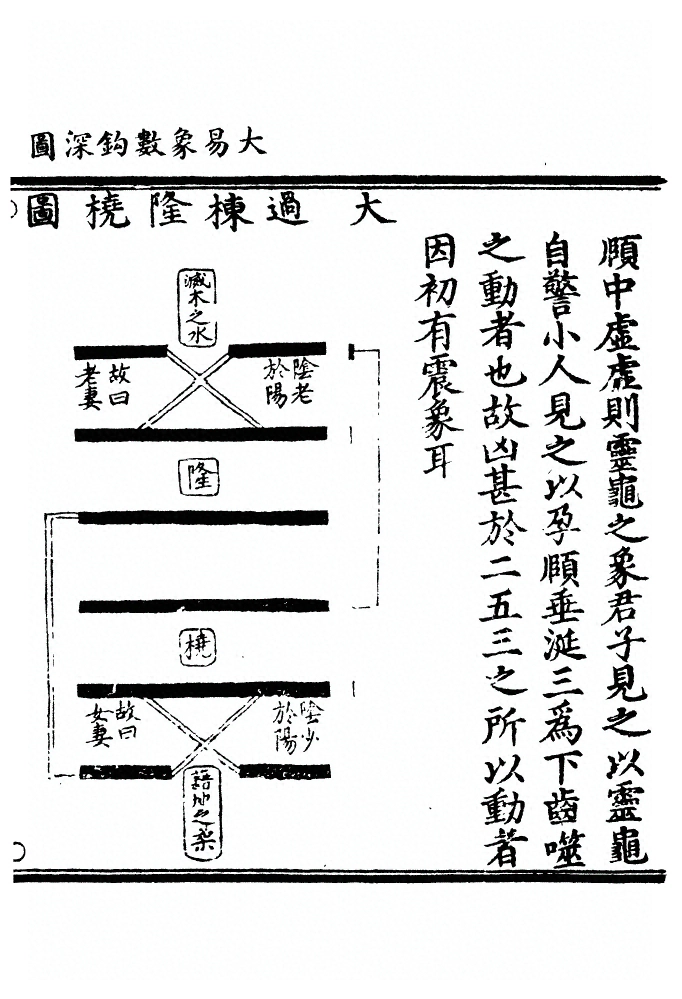 大易象數鈎深圖
頤中虛虛則靈龜之象君子見之以靈龜
自警小人見之以孕頤垂涎三爲下齒噬
之動者也故凶甚於二五三之所以動者
因初有震象耳
大過棟隆橈圖
滅木之水
陰老
於陽
故曰
老妻
隆
橈
陰少
於陽
故曰
女妻
籍地之柔